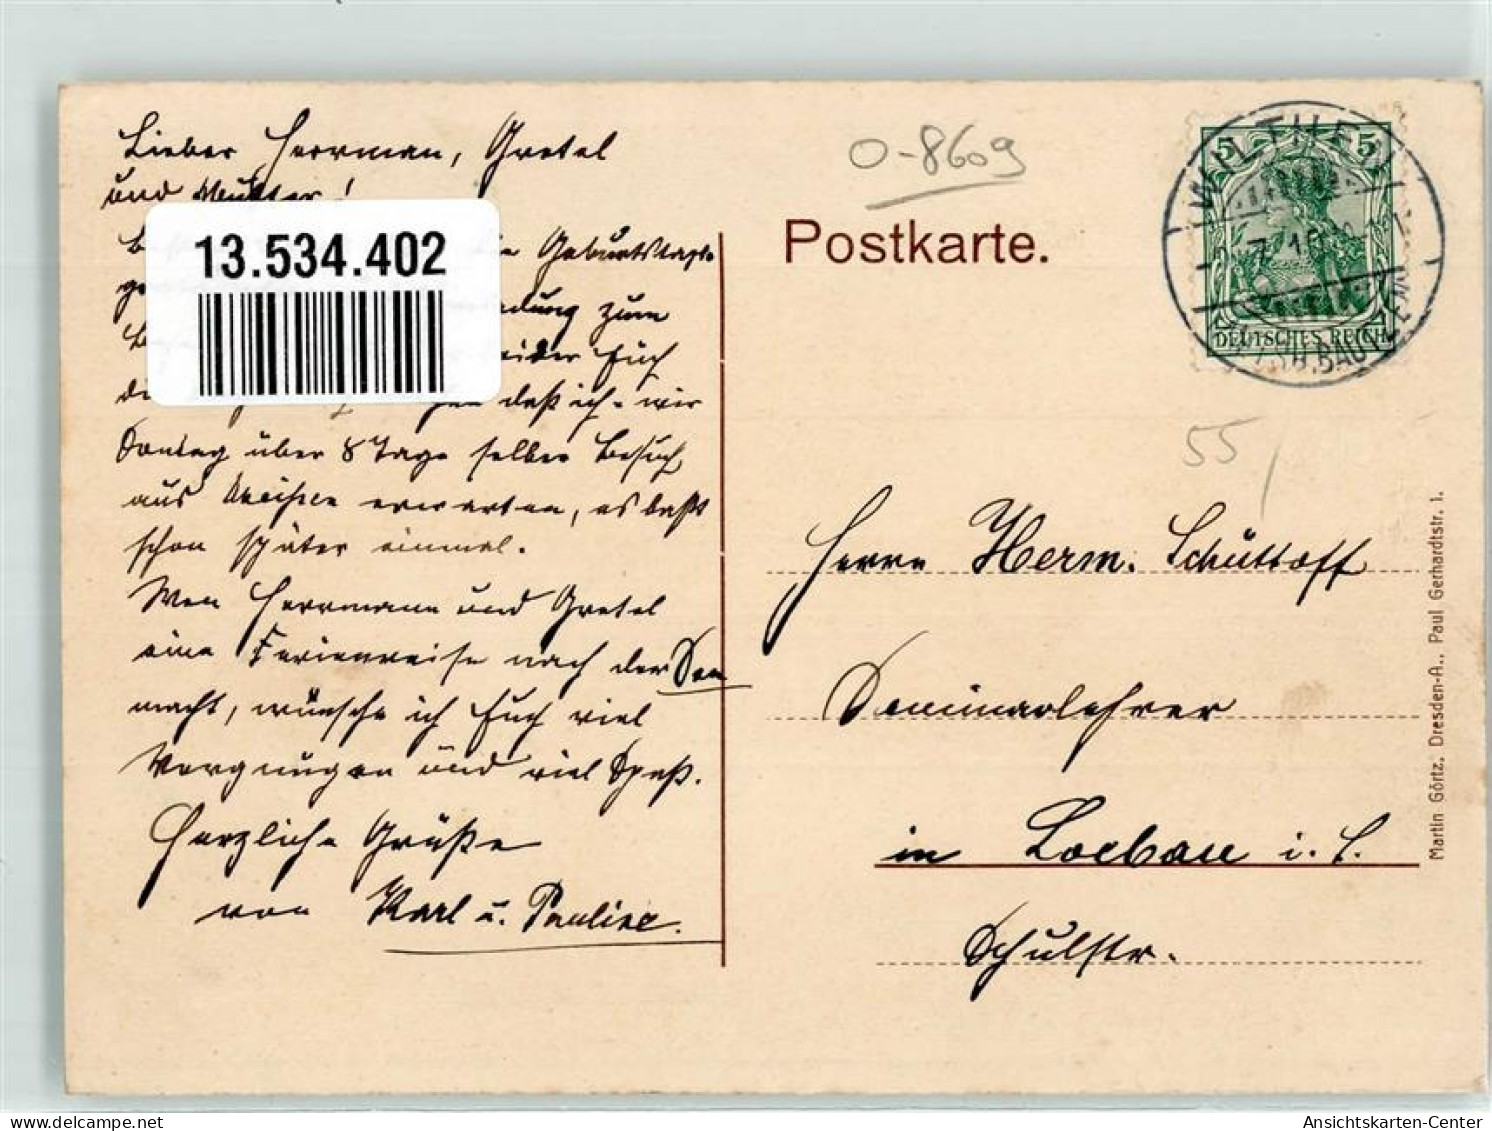 Lieber Herrman, Gretel
und Mutter!
13.534.402
Geburtstags-
zum
Euch
daß ich - wir
Sontag über 8 Tage selber Besuch
aus Meißen erwarten, es baßt
schon später einmal.
Wen Herrmann und Gretel
eine Ferienreise nach der
macht, wünsche ich Euch viel
Vergnügen und viel Spaß.
Herzliche Grüße
von Karl u. Pauline.
O-8609
Postkarte.
5 5
DEUTSCHES REICH
WILTHEN
BAUTZEN
55
Herrn Herm. Schüttoff
Seminarlehrer
in Loebau i. S.
Schulstr.
Martin Görtz, Dresden-A., Paul Gerhardtstr. 1.
Ansichtskarten-Center